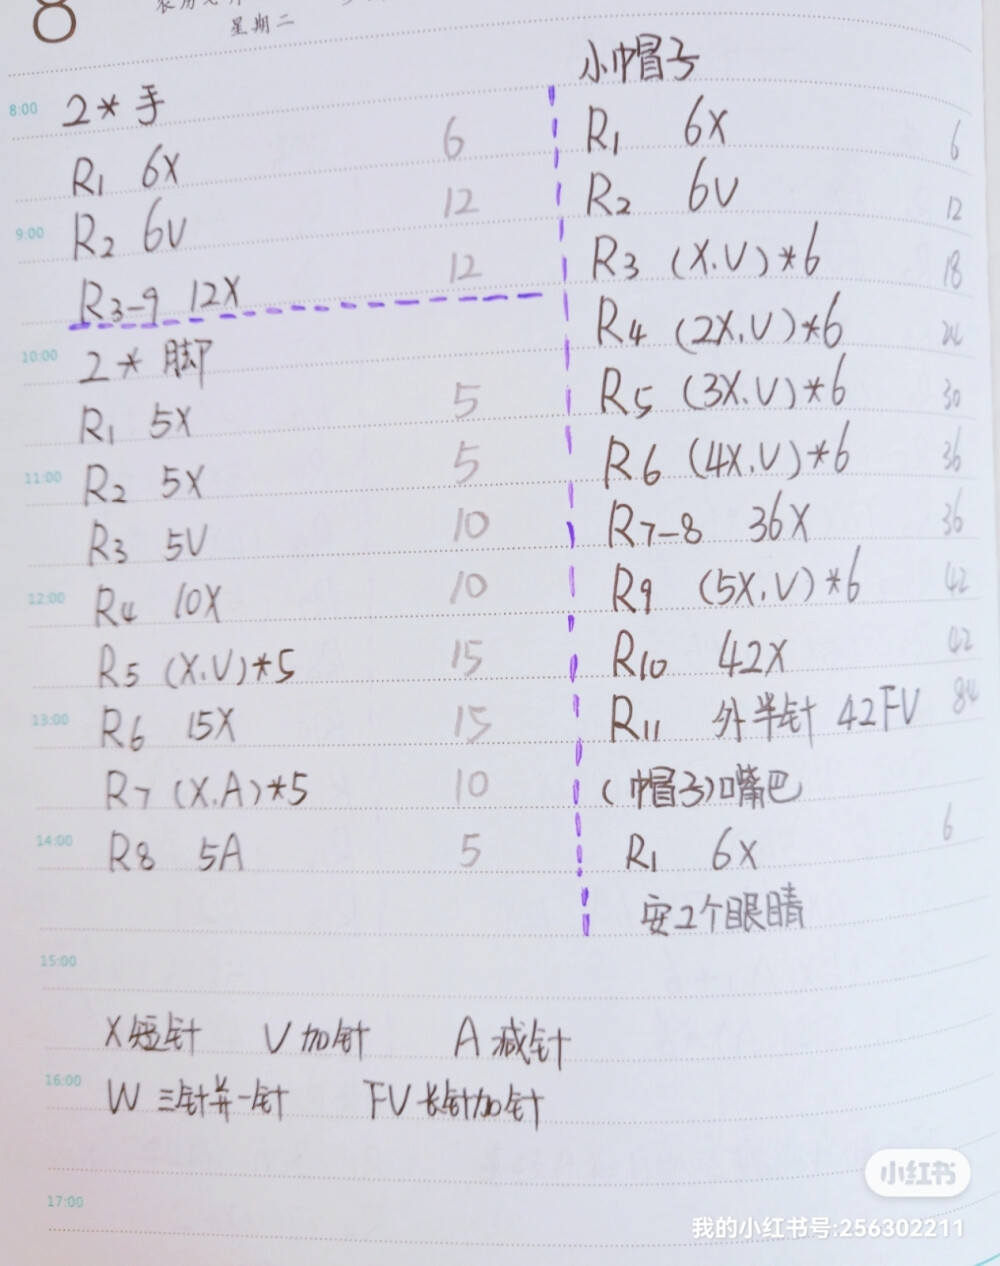 8
星期二
8:00 2*手
R1 6X 6
9:00 R2 6V 12
R3-9 12X 12
10:00 2*脚
R1 5X 5
11:00 R2 5X 5
R3 5V 10
12:00 R4 10X 10
R5 (X.V)*5 15
13:00 R6 15X 15
R7 (X.A)*5 10
14:00 R8 5A 5
小巾帽子
R1 6X 6
R2 6V 12
R3 (X.V)*6 18
R4 (2X.V)*6 24
R5 (3X.V)*6 30
R6 (4X.V)*6 36
R7-8 36X 36
R9 (5X.V)*6 42
R10 42X 42
R11 外半针 42FV 84
(帽子)嘴巴
R1 6X 6
安2个眼睛
15:00
X短针 V加针 A减针
16:00 W三针并一针 FV长针加针
17:00
小红书
我的小红书号:256302211